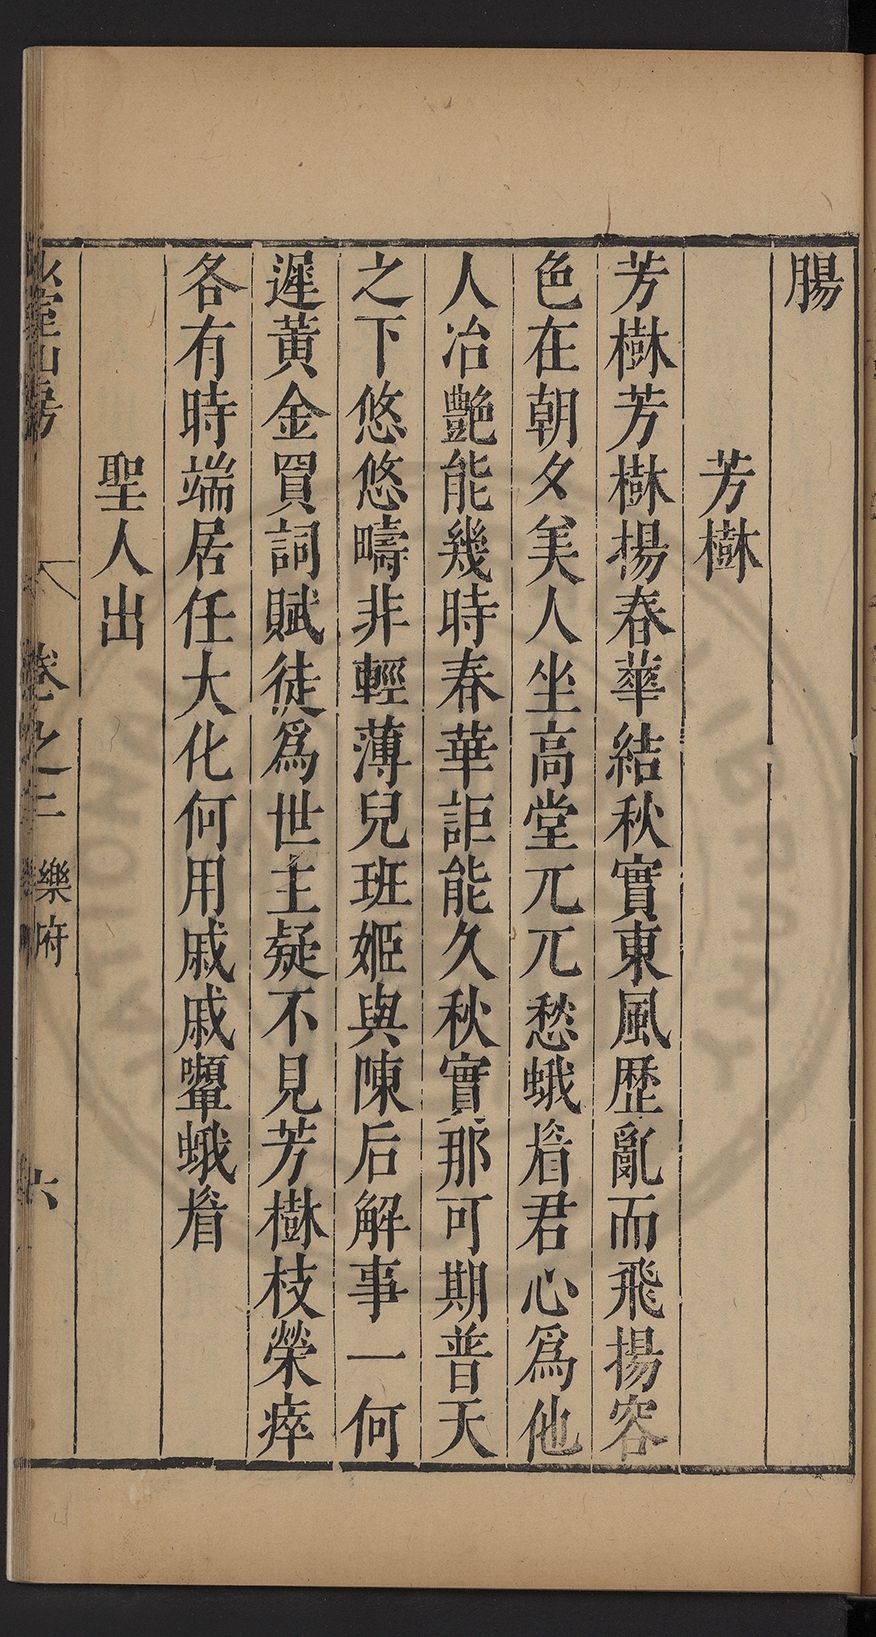 腸
芳樹
芳樹芳樹揚春華結秋實東風歴亂而飛揚容
色在朝夕美人坐高堂兀兀愁蛾眉君心爲他
人冶艷能幾時春華詎能久秋實那可期普天
之下悠悠疇非輕薄兒班姬與陳后解事一何
遲黃金買詞賦徒爲世主疑不見芳樹枝榮瘁
各有時端居任大化何用戚戚顰蛾眉
聖人出
卷之二 樂府 六